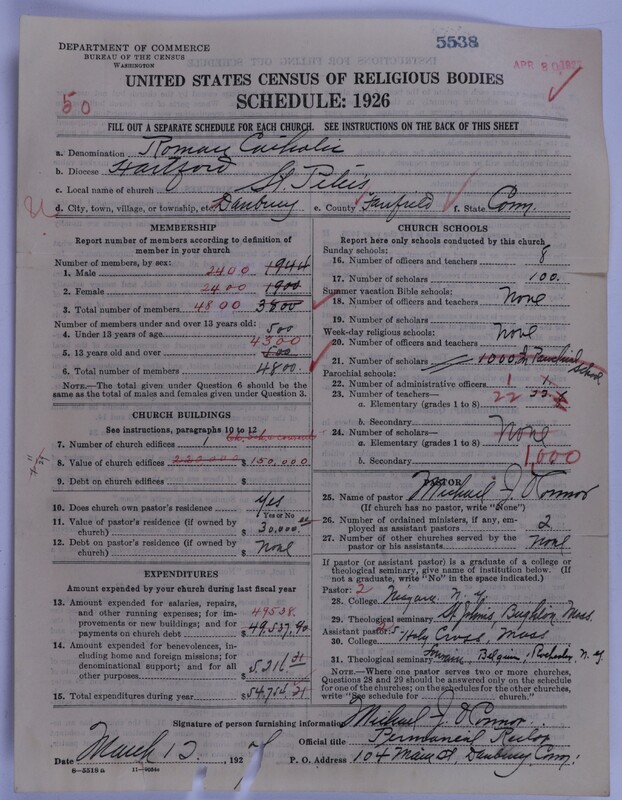 DEPARTMENT OF COMMERCE
BUREAU OF THE CENSUS
WASHINGTON
5538
APR 30 1927
UNITED STATES CENSUS OF RELIGIOUS BODIES
SCHEDULE: 1926
50
FILL OUT A SEPARATE SCHEDULE FOR EACH CHURCH. SEE INSTRUCTIONS ON THE BACK OF THIS SHEET
a. Denomination Roman Catholic
b. Diocese Hartford
c. Local name of church St. Peter's
d. City, town, village, or township, etc. Danbury e. County Fairfield f. State Conn.
MEMBERSHIP
Report number of members according to definition of member in your church
Number of members, by sex:
1. Male 2400 1944
2. Female 2400 1900
3. Total number of members 4800 3800
Number of members under and over 13 years old:
4. Under 13 years of age 500
4300
5. 13 years old and over 500
6. Total number of members 4800
NOTE.—The total given under Question 6 should be the same as the total of males and females given under Question 3.
CHURCH BUILDINGS
See instructions, paragraphs 10 to 12
7. Number of church edifices 1
8. Value of church edifices 220000 $150,000
9. Debt on church edifices $
10. Does church own pastor's residence Yes
Yes or No
11. Value of pastor's residence (if owned by church) $30,000.00
12. Debt on pastor's residence (if owned by church) $None
EXPENDITURES
Amount expended by your church during last fiscal year
13. Amount expended for salaries, repairs, and other running expenses; for improvements or new buildings; and for payments on church debt 49538. $49,537.90
14. Amount expended for benevolences, including home and foreign missions; for denominational support; and for all other purposes $5,216.31
15. Total expenditures during year $54,754.21
CHURCH SCHOOLS
Report here only schools conducted by this church
Sunday schools:
16. Number of officers and teachers 8
17. Number of scholars 100.
Summer vacation Bible schools:
18. Number of officers and teachers None
19. Number of scholars
Week-day religious schools:
20. Number of officers and teachers None
21. Number of scholars 1000 In Parochial School
Parochial schools:
22. Number of administrative officers 1 1
23. Number of teachers— 22 22
a. Elementary (grades 1 to 8)
b. Secondary
24. Number of scholars— None
a. Elementary (grades 1 to 8)
1,000
b. Secondary
PASTOR
25. Name of pastor Michael J. O'Connor
(If church has no pastor, write "None")
26. Number of ordained ministers, if any, employed as assistant pastors 2
27. Number of other churches served by the pastor or his assistants None
If pastor (or assistant pastor) is a graduate of a college or theological seminary, give name of institution below. (If not a graduate, write "No" in the space indicated.)
Pastor: 2
28. College Niagara N.Y.
29. Theological seminary St. John's, Brighton, Mass
Assistant pastor:
30. College Holy Cross, Mass
31. Theological seminary Louvain, Belgium, Rochester, N.Y.
NOTE.—Where one pastor serves two or more churches, Questions 28 and 29 should be answered only on the schedule for one of the churches; on the schedules for the other churches, write "See schedule for church."
Signature of person furnishing information Michael J. O'Connor.
Official title Permanent Rector
Date March 12. 1927 P. O. Address 104 Main St. Danbury, Conn.
8—5518a 11—9084a